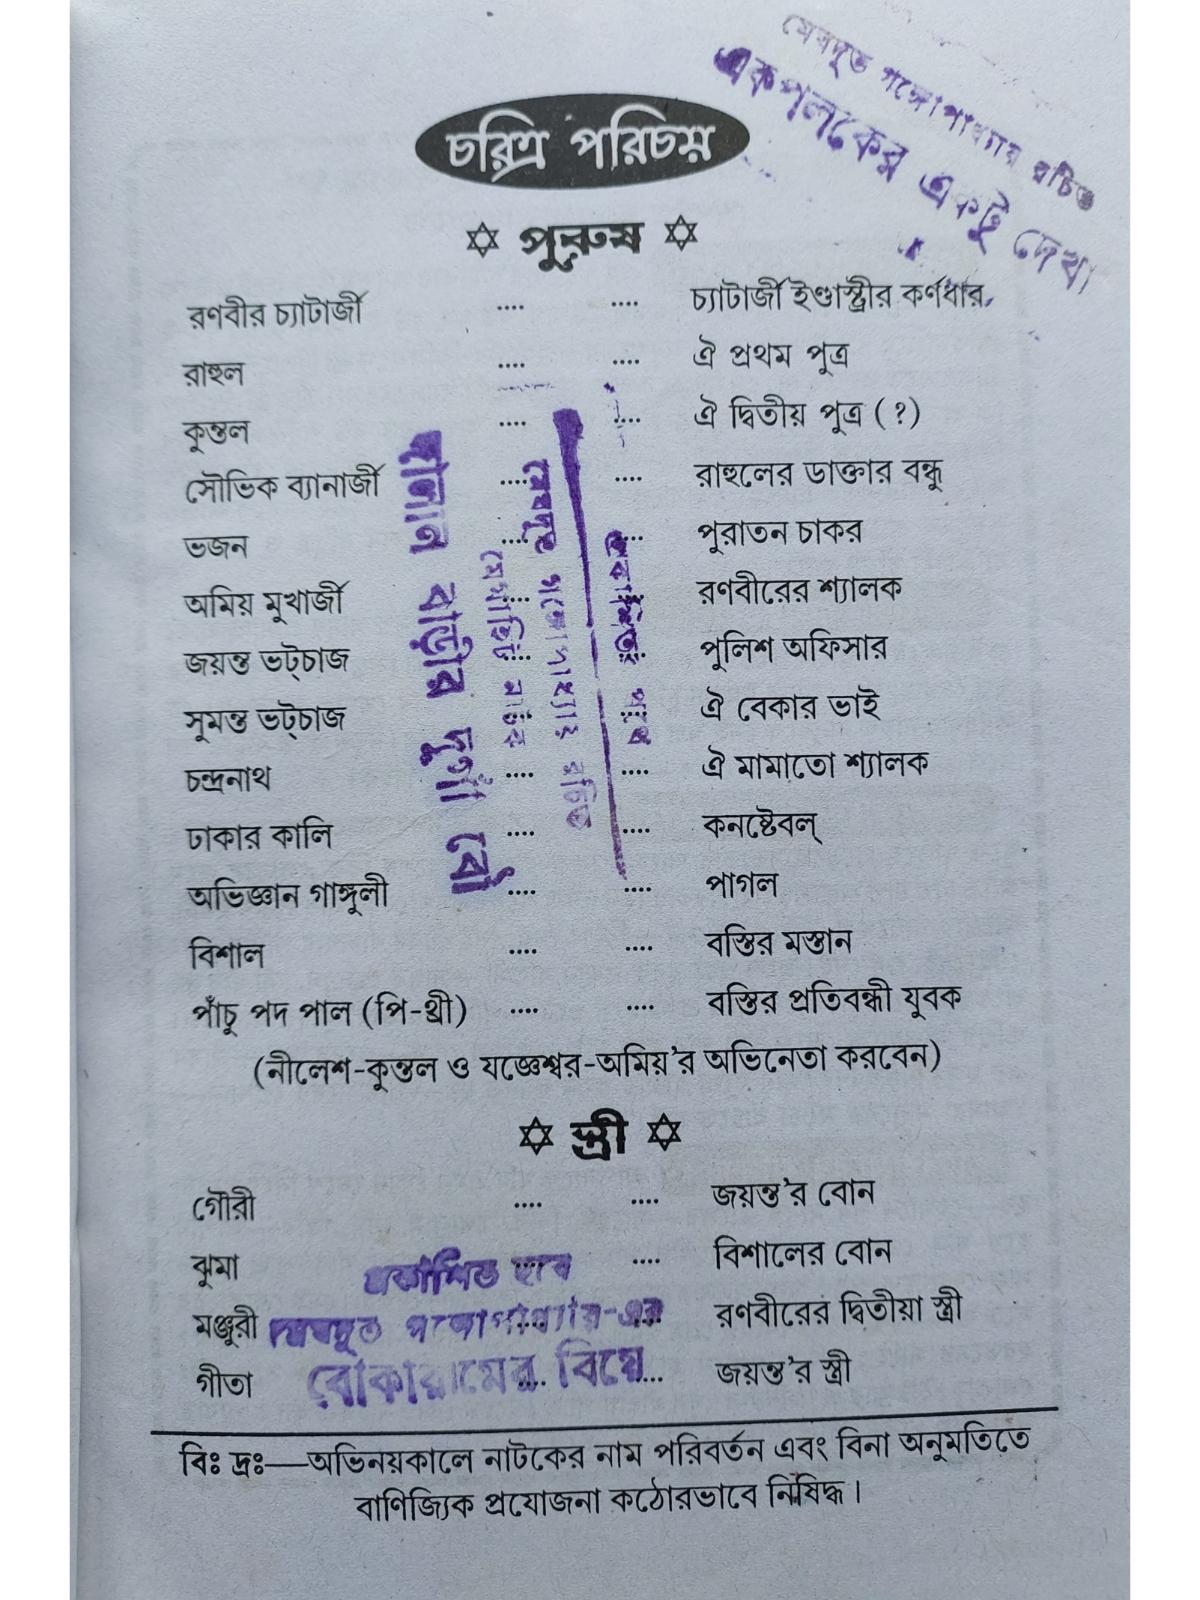 মেঘদূত গঙ্গোপাধ্যায় রচিত
একপলকের একটু দেখা
চরিত্র পরিচয়
পুরুষ
রণবীর চ্যাটার্জী .... .... চ্যাটার্জী ইণ্ডাস্ট্রীর কর্ণধার
রাহুল .... .... ঐ প্রথম পুত্র
কুন্তল .... .... ঐ দ্বিতীয় পুত্র (?)
সৌভিক ব্যানার্জী .... .... রাহুলের ডাক্তার বন্ধু
ভজন .... .... পুরাতন চাকর
অমিয় মুখার্জী .... .... রণবীরের শ্যালক
জয়ন্ত ভট্‌চাজ .... .... পুলিশ অফিসার
সুমন্ত ভট্‌চাজ .... .... ঐ বেকার ভাই
চন্দ্রনাথ .... .... ঐ মামাতো শ্যালক
ঢাকার কালি .... .... কনষ্টেবল্
অভিজ্ঞান গাঙ্গুলী .... .... পাগল
বিশাল .... .... বস্তির মস্তান
পাঁচু পদ পাল (পি-থ্রী) .... .... বস্তির প্রতিবন্ধী যুবক
(নীলেশ-কুন্তল ও যজ্ঞেশ্বর-অমিয়'র অভিনেতা করবেন)
মেঘদূত গঙ্গোপাধ্যায় রচিত
নাটক
দুগ্গা বৌ
পথে
স্ত্রী
গৌরী .... .... জয়ন্ত'র বোন
ঝুমা .... .... বিশালের বোন
মঞ্জুরী .... .... রণবীরের দ্বিতীয়া স্ত্রী
গীতা .... .... জয়ন্ত'র স্ত্রী
প্রকাশিত হবে
মেঘদূত গঙ্গোপাধ্যায়-এর
বোকারামের বিয়ে
বিঃ দ্রঃ—অভিনয়কালে নাটকের নাম পরিবর্তন এবং বিনা অনুমতিতে
বাণিজ্যিক প্রযোজনা কঠোরভাবে নিষিদ্ধ।